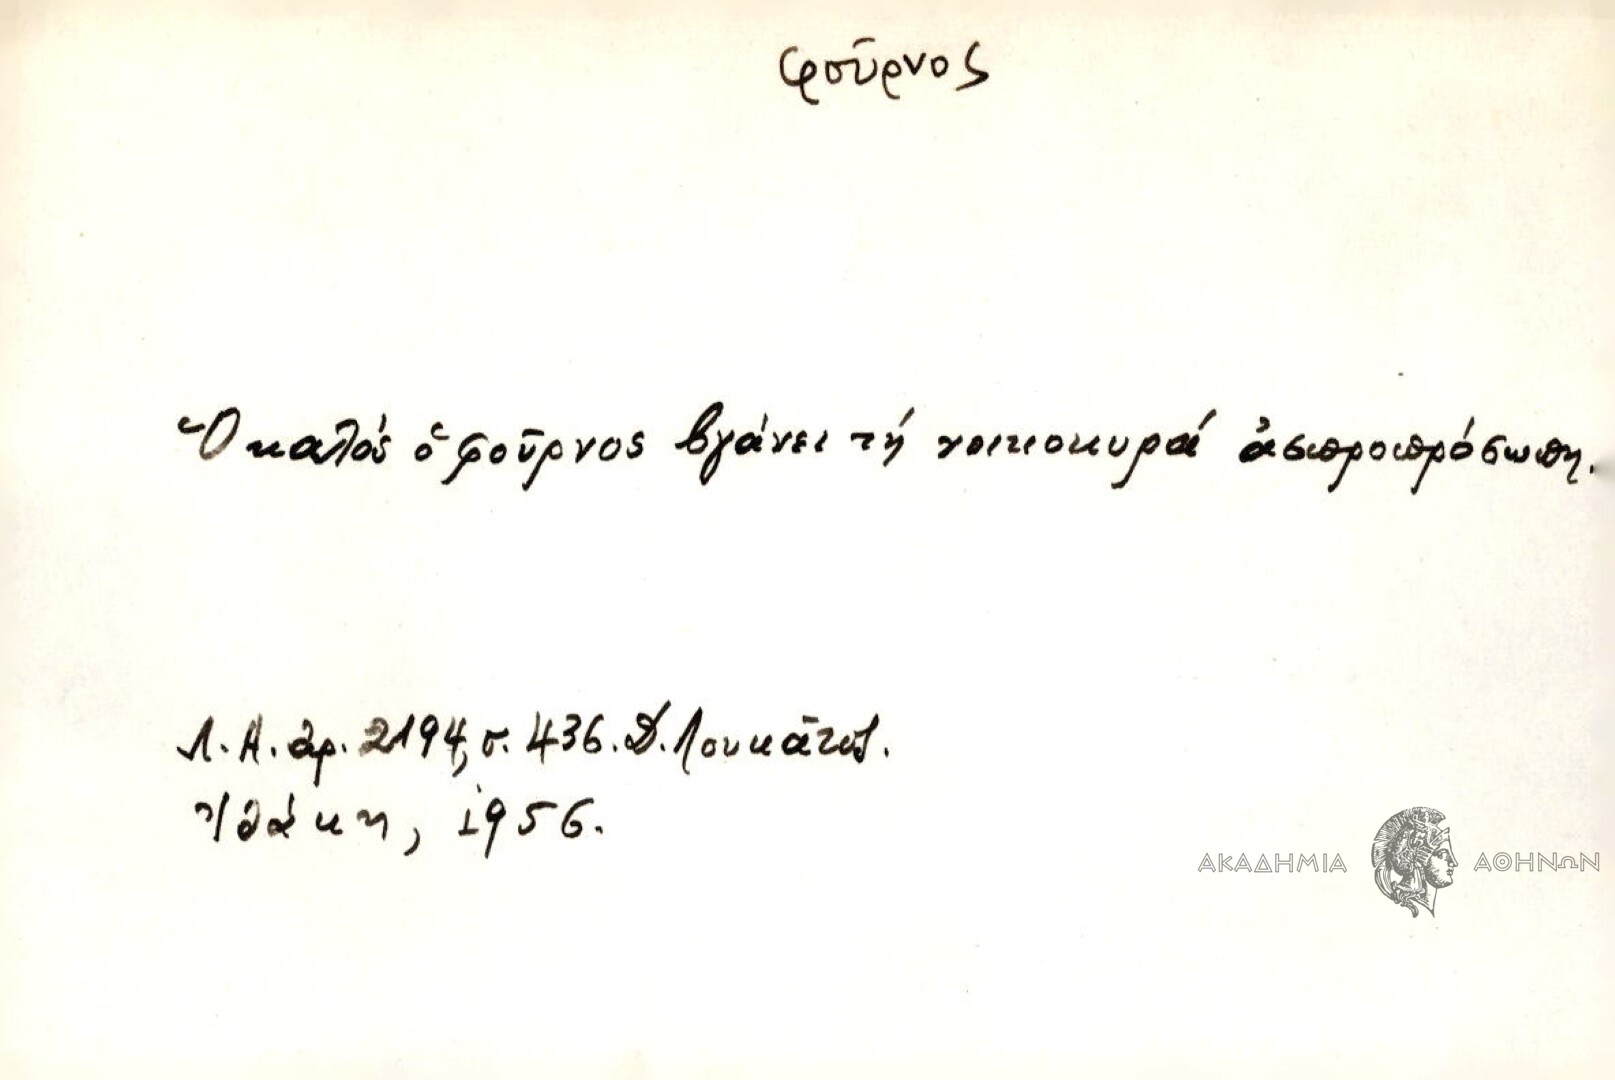 φοῦρνος
Ὁ καλός ὁ φοῦρνος βγάνει τή νοικοκυρά ἀσπροπρόσωπη.
Λ.Α. ἀρ. 2194, σ. 436. Δ. Λουκᾶτος.
Ἰθάκη, 1956.
ΑΚΑΔΗΜΙΑ ΑΘΗΝΩΝ